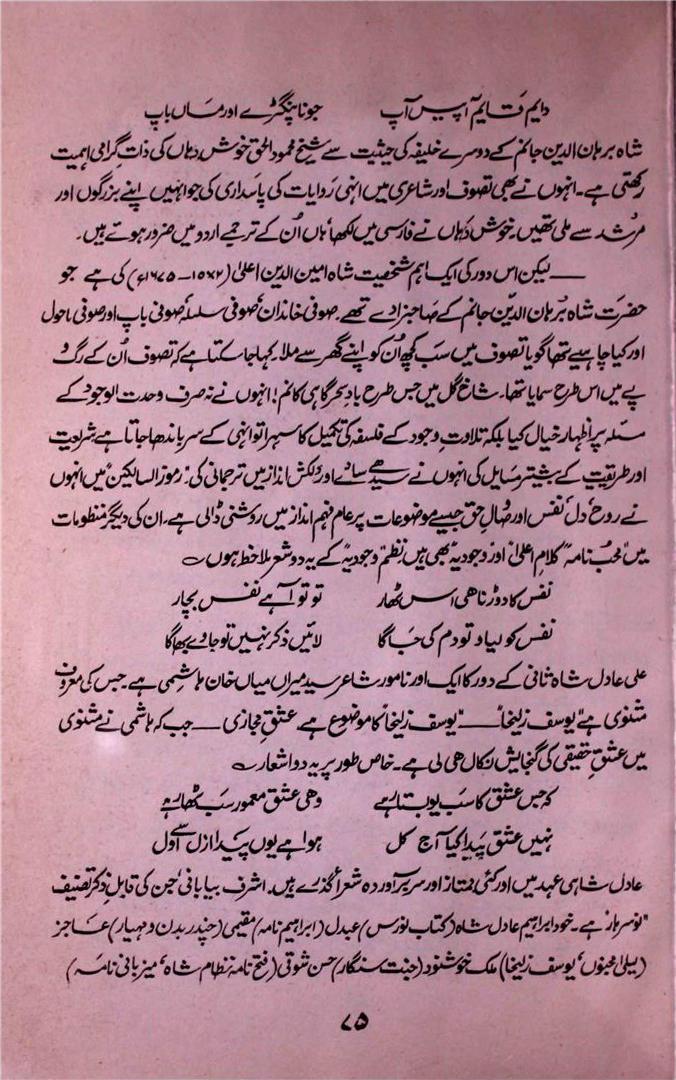 دایم قایم آپیں آپ جونا پنگڑے اور ماں باپ
شاہ برہان الدین جانم کے دوسرے خلیفہ کی حیثیت سے شیخ محمود الحق خوش دہاں کی ذات گرامی اہمیت
رکھتی ہے۔ انہوں نے بھی تصوف اور شاعری میں انہی روایات کی پاسداری کی جو انہیں اپنے بزرگوں اور
مرشد سے ملی تھیں۔ خوش دہاں نے فارسی میں لکھا، ہاں اُن کے ترجمے اردو میں ضرور ہوتے ہیں۔
——لیکن اس دور کی ایک اہم شخصیت شاہ امین الدین اعلیٰ (۱۵۶۲–۱۶۷۵ء) کی ہے جو
حضرت شاہ برہان الدین جانم کے صاحبزادے تھے۔ صوفی خاندان، صوفی سلسلہ، صوفی باپ اور صوفی ماحول
اور کیا چاہیے تھا گویا تصوف میں سب کچھ اُن کو اپنے گھر سے ملا۔ کہا جا سکتا ہے کہ تصوف اُن کے رگ و
پے میں اس طرح سمایا تھا۔ شاخ گل میں جس طرح باد سحر گاہی کا نم! انہوں نے نہ صرف وحدت الوجود کے
مسئلہ پر اظہار خیال کیا بلکہ تلاوت وجود کے فلسفہ کی تکمیل کا سہرا تو انہی کے سر باندھا جاتا ہے شریعت
اور طریقت کے بیشتر مسایل کی انہوں نے سیدھے سادے اور دلکش انداز میں ترجمانی کی۔ "رموز السالکین" میں انہوں
نے روح، دل، نفس اور وصال حق جیسے موضوعات پر عام فہم انداز میں روشنی ڈالی ہے۔ ان کی دیگر منظومات
میں "محب نامہ" "کلام اعلیٰ" اور "وجودیہ" بھی ہیں۔ نظم "وجودیہ" کے یہ دو شعر ملاحظہ ہوں ؎
نفس کا دوڑنا ھی اس ٹھار تو تو آہے نفس بچار
نفس کو لیاد تو دم کی جاگا لائیں ذکر نہیں تو جاوے بھاگا
علی عادل شاہ ثانی کے دور کا ایک اور نامور شاعر سید میراں میاں خان ہاشمی ہے۔ جس کی معروف
مثنوی ہے "یوسف زلیخا" —— "یوسف زلیخا" کا موضوع ہے عشق مجازی —— جب کہ ہاشمی نے مثنوی
میں عشق حقیقی کی گنجایش نکال ھی لی ہے۔ خاص طور پر یہ دو اشعار ؎
کہ جس عشق کا سب یو بستار ہے وھی عشق معمور سب ٹھار ہے
نہیں عشق پیدا کیا آج کل ہوا ہے یوں پیدا ازل سے اول
عادل شاہی عہد میں اور کئی ممتاز اور سربرآوردہ شعرأ گذرے ہیں۔ اشرف بیابانی، جن کی قابل ذکر تصنیف
"نوسرہار" ہے۔ خود ابراہیم عادل شاہ (کتاب نورس) عبدل (ابراہیم نامہ) مقیمی (چندر بدن و مہیار) عاجز
(لیلیٰ مجنوں، یوسف زلیخا) ملک خوشنود (جنت سنگار) حسن شوقی (فتح نامہ نظام شاہ، میزبانی نامہ)
۷۵